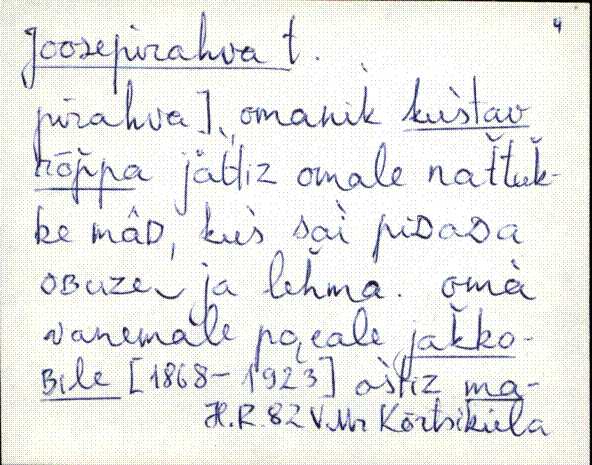 4
Joosepirahva t.
pirahva], omanik kùstav
rõppa jättiz omale natťuk-
ke mâD, kus sai piDaDa
oBuze ja lehma. omà
vanemale pojeale jakko-
Bile [1868-1923] ostiz ma-
H.R. 82 V.Mr Kõrtsiküla